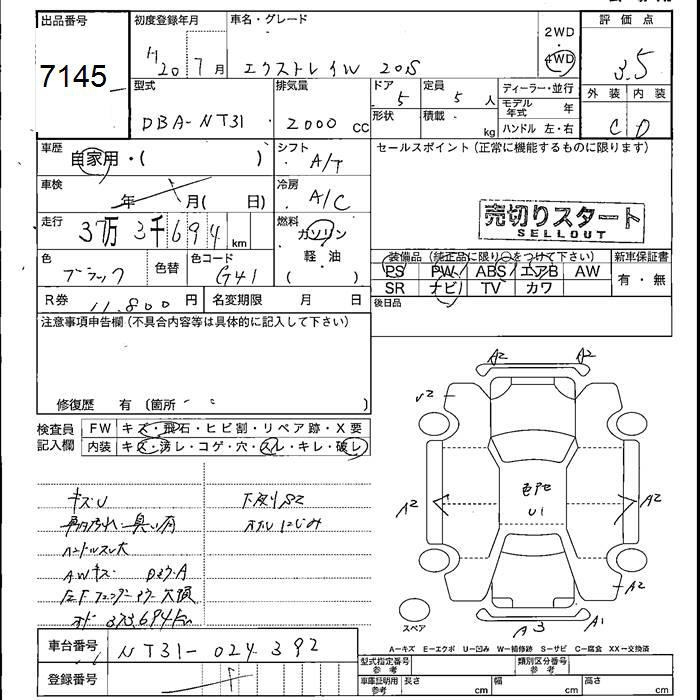 出品番号
7145
初度登録年月
H20 7月
車名・グレード
エクストレイル 20S
2WD
4WD
評価点
3.5
外装 内装
C D
型式
DBA-NT31
排気量
2000 CC
ドア 5
形状
定員 5 人
積載 kg
ディーラー・並行
モデル年式 年
ハンドル 左・右
車歴
自家用・( )
シフト
A/T
セールスポイント(正常に機能するものに限ります)
車検
年 月( 日)
冷房
A/C
売切りスタート
SELLOUT
走行
37万3千694km
燃料
ガソリン
軽・油
( )
色
ブラック
色替
色コード
G41
装備品(純正品に限り○をつけて下さい)
PS PW ABS エアB AW
SR ナビ TV カワ
新車保証書
有・無
R券 11,800円
名変期限 月 日
後日品
注意事項申告欄(不具合内容等は具体的に記入して下さい)
修復歴 有(箇所
検査員記入欄
FW キズ・飛石・ヒビ割・リペア跡・X要
内装 キズ・汚レ・コゲ・穴・スレ・キレ・破レ
キズU
下廻りS2
オイルにじみ
ハンドルスレ大
AWキズ
A2 A2
A2 A2
A2
A3 A1
U1
スペア
373,694km
A-キズ E-エクボ U-凹み W-補修跡 S-サビ C-腐食 XX-交換済
車台番号
NT31-024392
登録番号
型式指定番号 参考
類別区分番号 参考
車庫証明用 参考
長さ cm 幅 cm 高さ cm